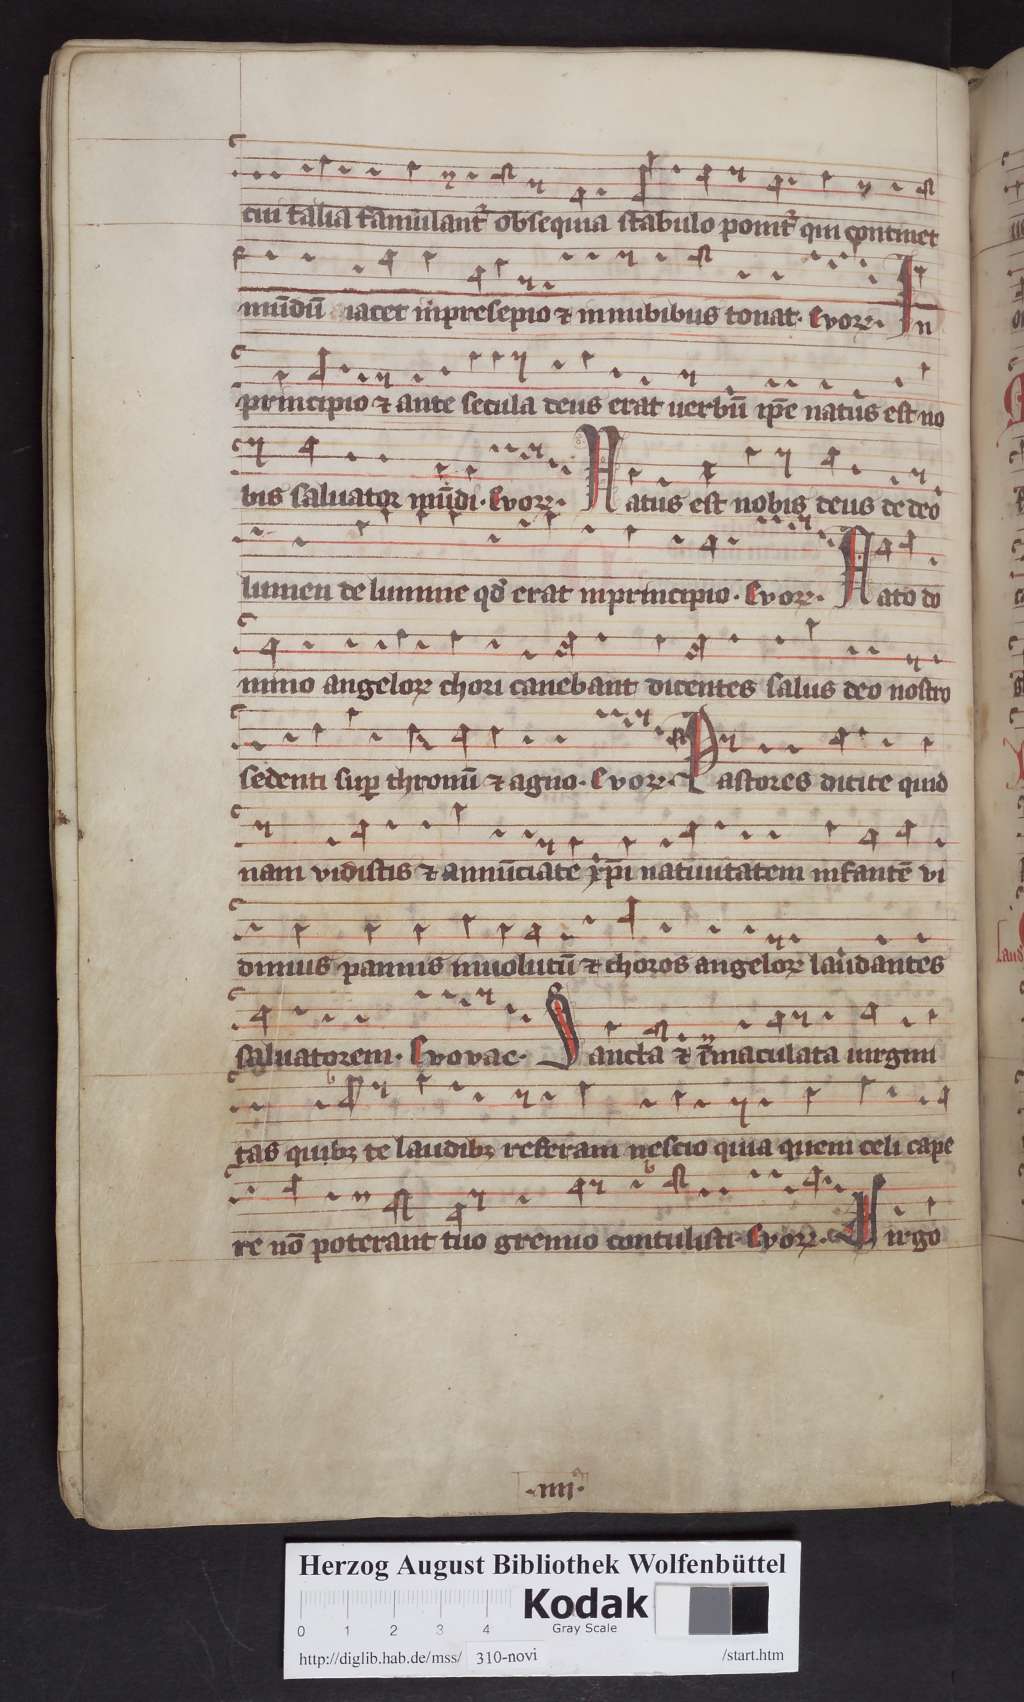 cui talia famulant᷑ obsequia stabulo ponit᷑ qui continet
mūdū iacet inpresepio ⁊ innubibus tonat. Evoꝝ. In
principio ⁊ ante secula deus erat uerbū ip̄e natus est no
bis saluator mūdi. Evoꝝ. Natus est nobis deus de deo
lumen de lumine qd̓ erat inprincipio. Evoꝝ. Nato do
mino angeloꝝ chori canebant dicentes salus deo nostro
sedenti suꝑ thronū ⁊ agno. Evoꝝ. Pastores dicite quid
nam vidistis ⁊ annūciate xp̄i natiuitatem infantē vi
dimus pannis inuolutū ⁊ choros angeloꝝ laudantes
saluatorem. Evovae. Sancta ⁊ īmaculata uirgini
tas quibꝫ te laudibꝫ referam nescio quia quem celi cape
re nō poterant tuo gremio contulisti. Evoꝝ. Uirgo
.IIII.
Herzog August Bibliothek Wolfenbüttel
0 1 2 3 4
Kodak
Gray Scale
http://diglib.hab.de/mss/ 310-novi /start.htm